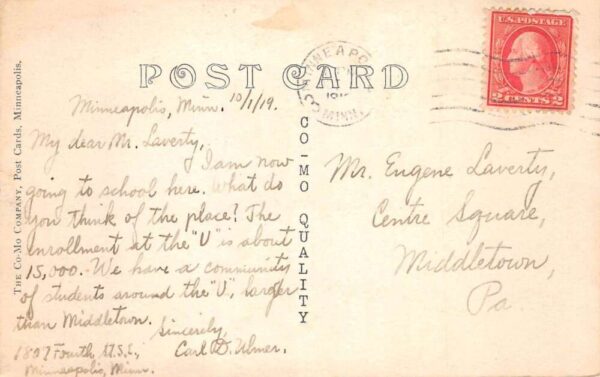 POST CARD
THE CO-MO COMPANY, Post Cards, Minneapolis.
CO-MO QUALITY
U.S. POSTAGE
2 CENTS 2
MINNEAPO
MINN.
Minneapolis, Minn. 10/1/19.
My dear Mr. Laverty,
I am now
going to school here. What do
you think of the place? The
enrollment at the "U" is about
15,000. We have a community
of students around the "U", larger
than Middletown.
Sincerely,
Carl D. Ulmer.
Fourth St. S.E.,
Minneapolis, Minn.
Mr. Eugene Laverty,
Centre Square,
Middletown,
Pa.